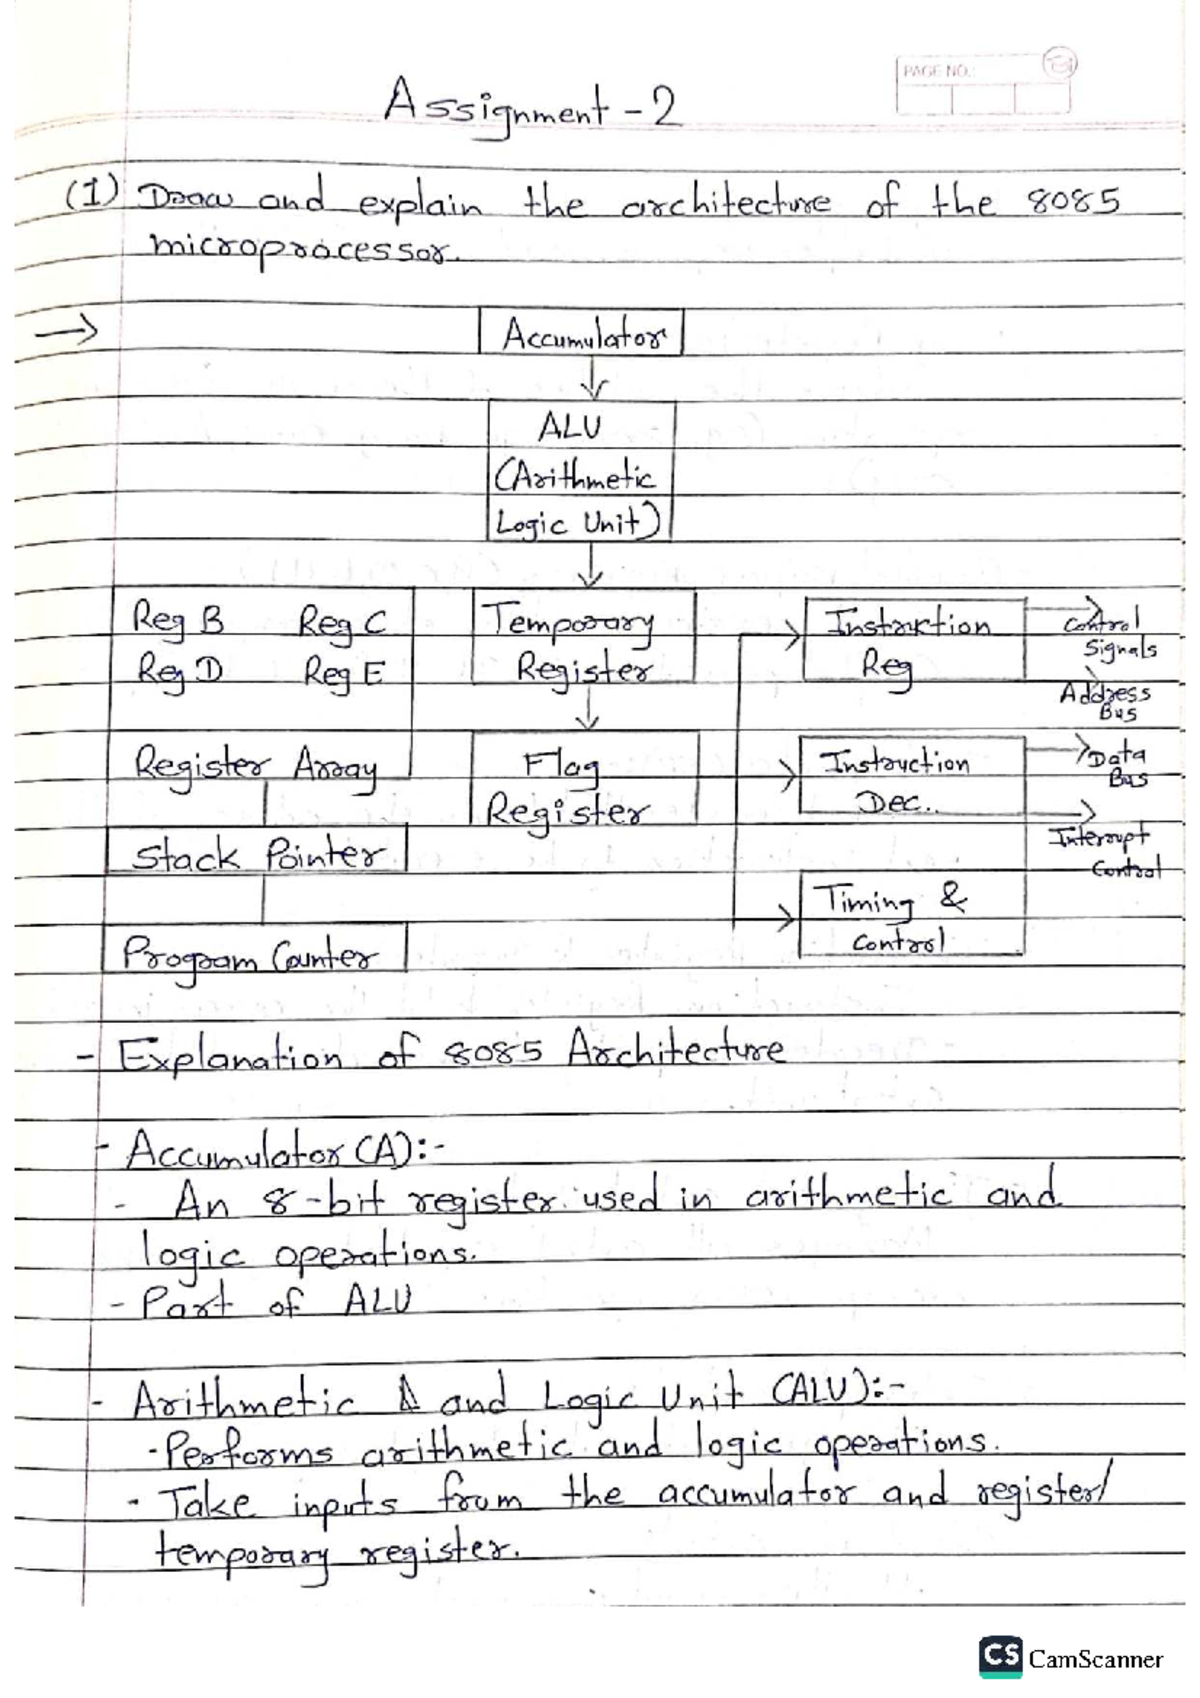 PAGE NO.:
Assignment - 2
(1) Draw and explain the architecture of the 8085
microprocessor.
→
Accumulator
ALU
(Arithmetic
Logic Unit)
Reg B Reg C
Reg D Reg E
Register Array
Stack Pointer
Program Counter
Temporary
Register
Flag
Register
Instruction
Reg
Instruction
Dec..
Timing &
Control
Control
Signals
Address
Bus
Data
Bus
Interrupt
Control
- Explanation of 8085 Architecture
- Accumulator (A):-
- An 8-bit register used in arithmetic and
logic operations.
- Part of ALU
- Arithmetic and Logic Unit (ALU):-
- Performs arithmetic and logic operations.
- Take inputs from the accumulator and register/
temporary register.
CS CamScanner